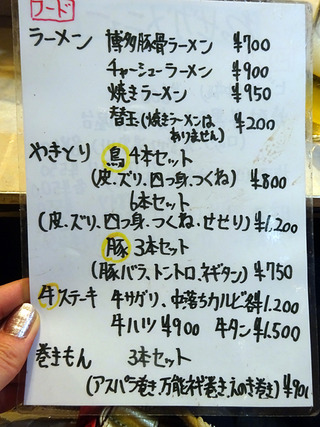 フード
ラーメン 博多豚骨ラーメン ¥700
チャーシューラーメン ¥900
焼きラーメン ¥950
替玉(焼きラーメンはありません) ¥200
やきとり 鳥 4本セット
(皮、ズリ、四つ身、つくね) ¥800
6本セット
(皮、ズリ、四つ身、つくね、せせり) ¥1,200
豚 3本セット
(豚バラ、トントロ、ネギタン) ¥750
牛ステーキ 牛サガリ、中落ちカルビ各¥1.200
牛ハツ ¥900 牛タン ¥1.500
巻きもん 3本セット
(アスパラ巻き、万能ネギ巻き、えのき巻き) ¥90